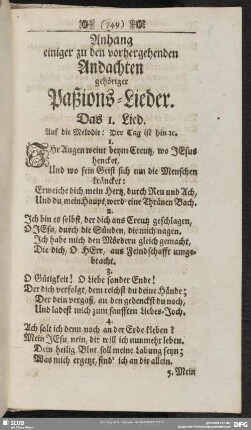 (749)
Anhang
einiger zu den vorhergehenden
Andachten
gehöriger
Paßions-Lieder.
Das 1. Lied.
Auf die Melodie: Der Tag ist hin ꝛc.
1.
IHr Augen weint beym Creutz, wo JEsus
hencket,
Und wo sein Geist sich um die Menschen
kräncket:
Erweiche dich mein Hertz, durch Reu und Ach,
Und du, mein Haupt, werd' eine Thränen Bach.
2.
Ich bin es selbst, der dich ans Creutz geschlagen,
O JEsu, durch die Sünden, die mich nagen.
Ich habe mich den Mördern gleich gemacht,
Die dich, O HErr, aus Feindschafft umge-
bracht.
3.
O Gütigkeit! O Liebe sonder Ende!
Der dich verfolgt, dem reichst du deine Hände;
Der dein vergaß, an den gedenckst du noch,
Und ladest mich zum saufften Liebes-Joch.
4.
Ach solt ich denn noch an der Erde kleben?
Mein JEsu, nein, dir will ich nunmehr leben.
Dein heilig Blut soll meine Labung seyn;
Was mich ergetzt, find' ich an die allein.
5. Mein
SLUB
DFG